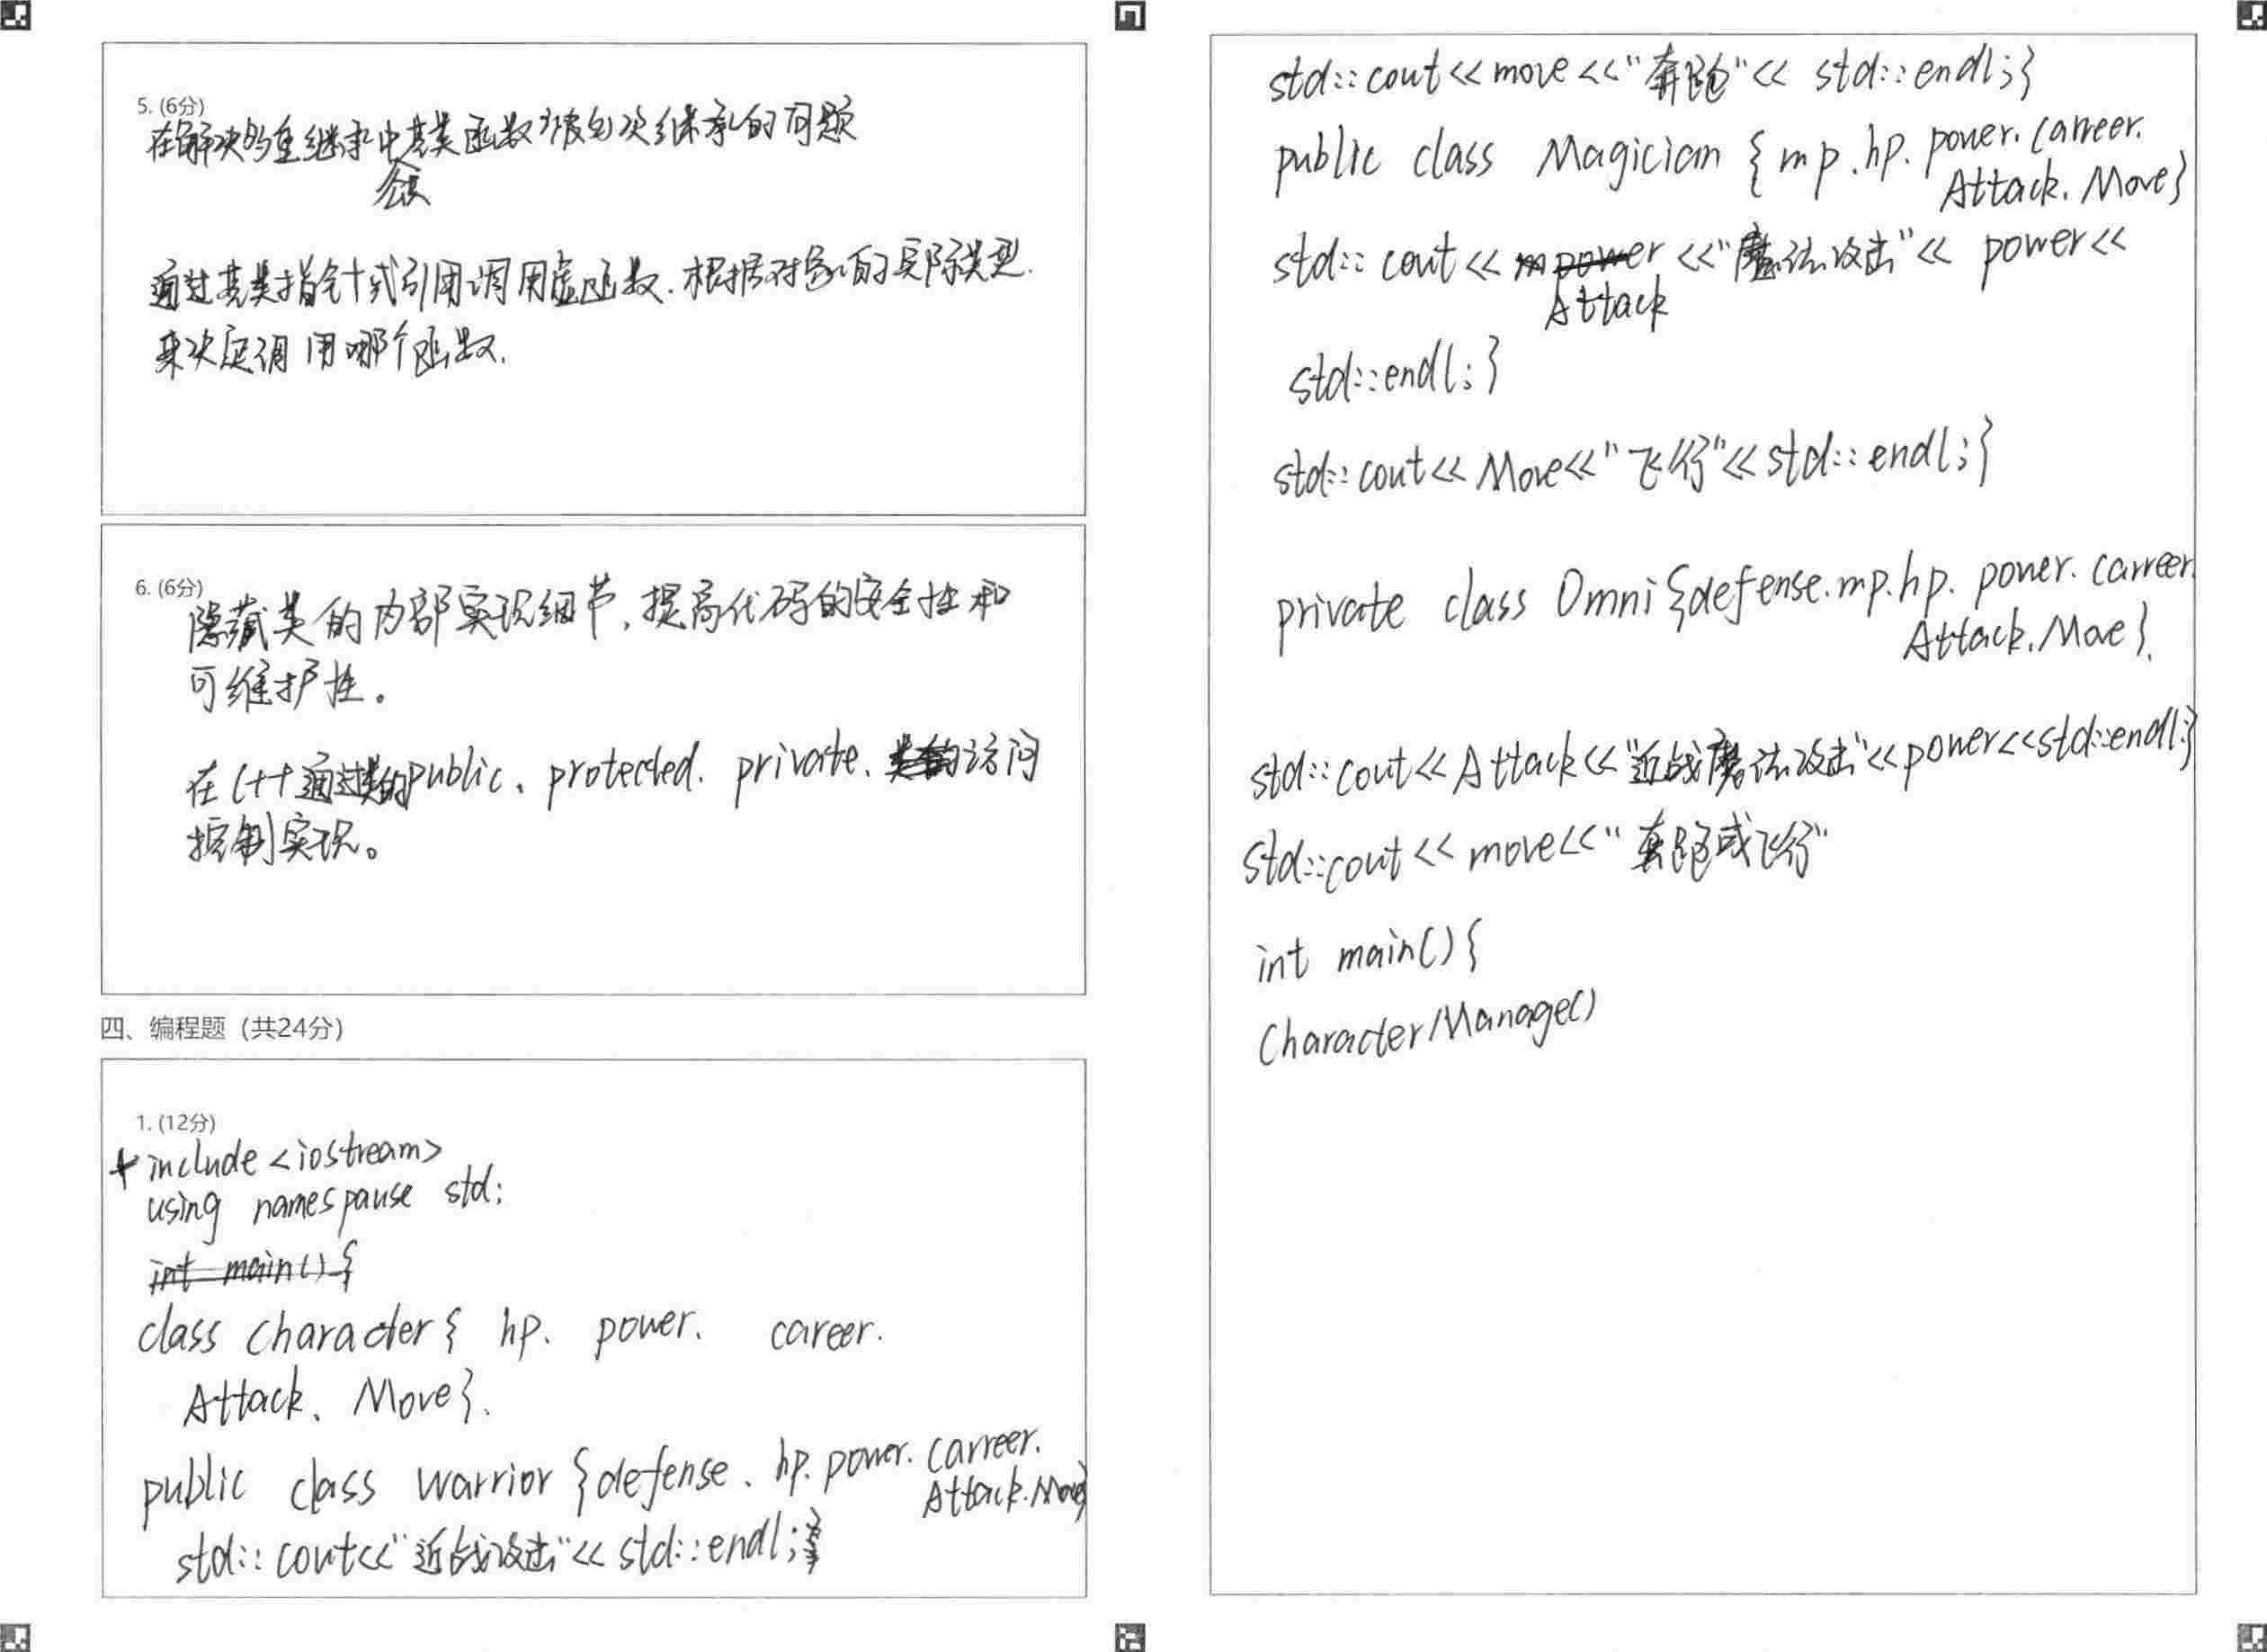 5. (6分)
在解决多重继承中基类函数被多次继承的问题
会
通过基类指针或引用调用虚函数.根据对象的实际类型.
来决定调用哪个函数.
6. (6分)
隐藏类的内部实现细节,提高代码的安全性和
可维护性。
在C++通过类的public、protected. private、访问
控制实现。
四、编程题（共24分）
1. (12分)
include <iostream>
using namespause std;
int main() {
class Character { hp. power. career.
Attack、Move}.
public class Warrior {defense、hp. power. carreer.
Attack. Move}
std::cout<<"近战攻击"<< std::endl;}
std::cout<< move <<"奔跑"<< std::endl;}
public class Magician { mp.hp. power. carreer.
Attack. Move}
std:: cout << <<"魔法攻击"<< power<<
Attack
std::endl;}
std::cout<< Move<<"飞行"<<std::endl;}
private class Omni {defense.mp.hp. power. carreer.
Attack.Move}.
std::cout<<Attack<<"近战魔法攻击"<<power<<std::endl;}
std::cout<< move<<"奔跑或飞行"
int main() {
CharacterManage()